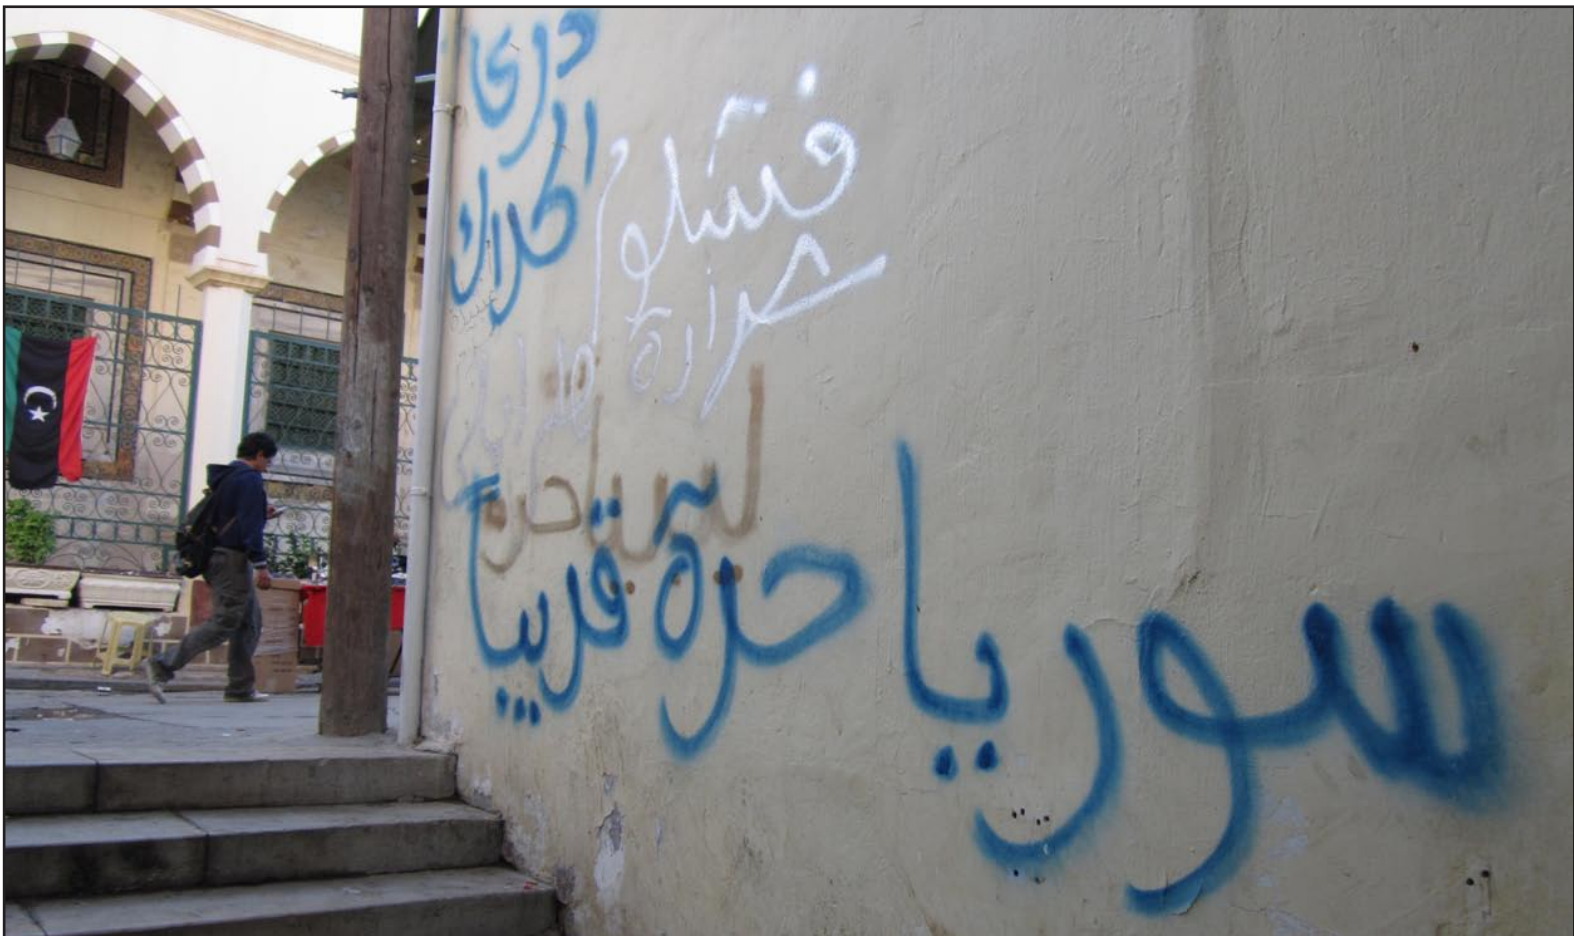 درى
الكلاك
فشلوم
شرارة
ليبيا حره
سوريا حرة قريباً